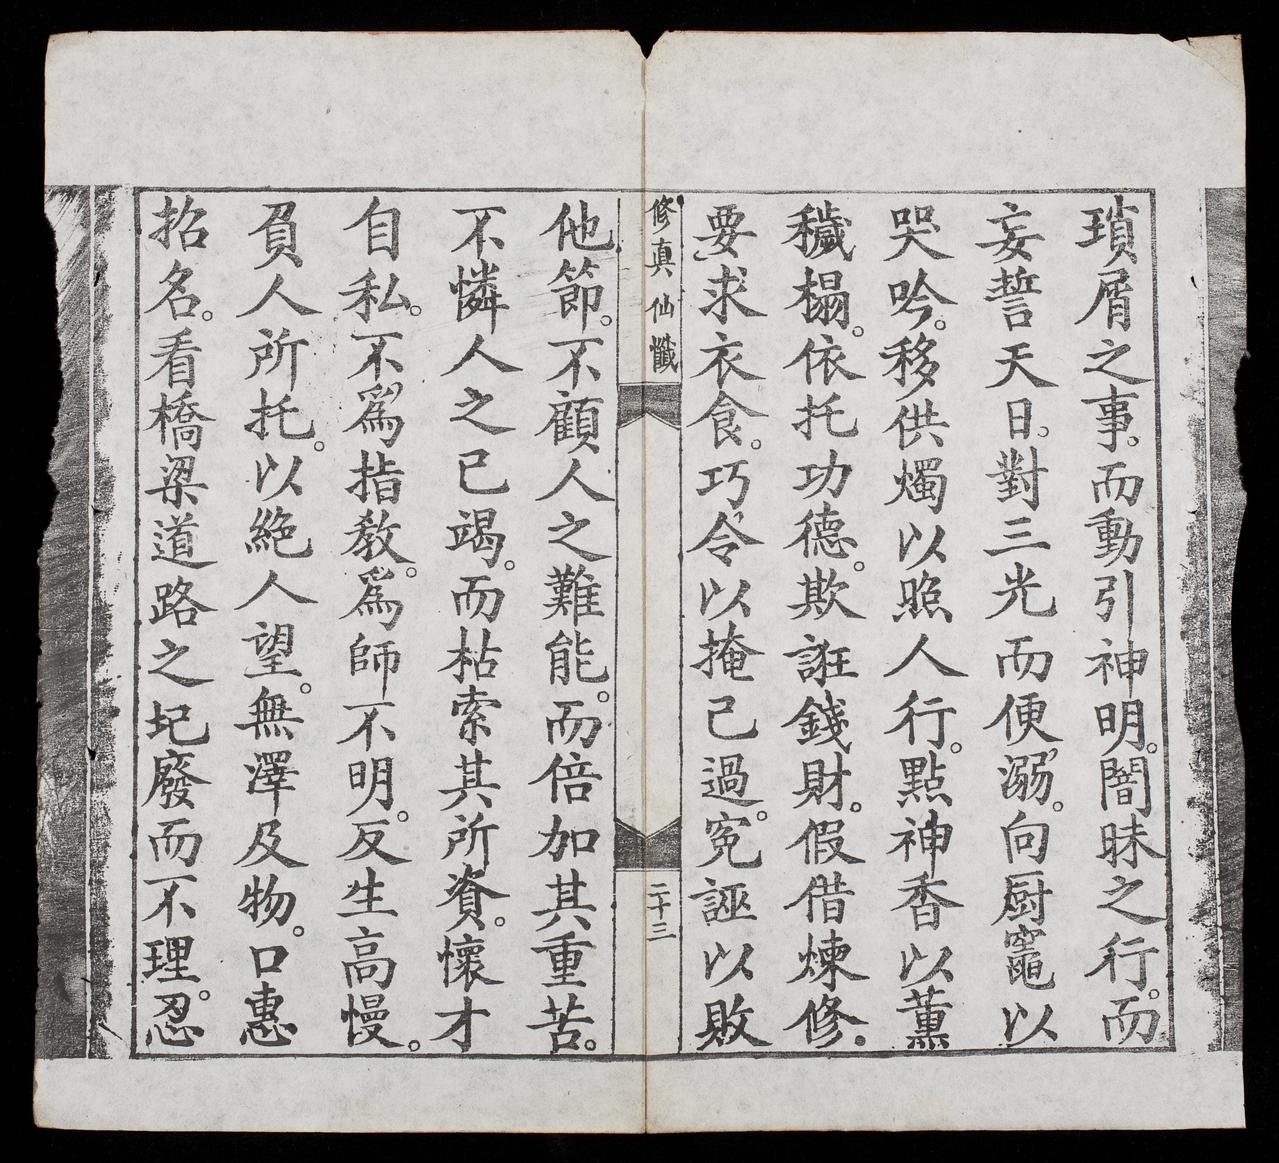 瑣屑之事。而動引神明。闇昧之行。而
妄誓天日。對三光而便溺。向厨竈以
哭吟。移供燭以照人行。點神香以薰
穢榻。依托功德。欺誑錢財。假借煉修。
要求衣食。巧令以掩己過。冤誣以敗
修真仙懺
二十三
他節。不顧人之難能。而倍加其重苦。
不憐人之已竭。而枯索其所資。懷才
自私。不爲指教。爲師不明。反生高慢。
負人所托。以絶人望。無澤及物。口惠
招名。看橋梁道路之圮廢而不理。忍